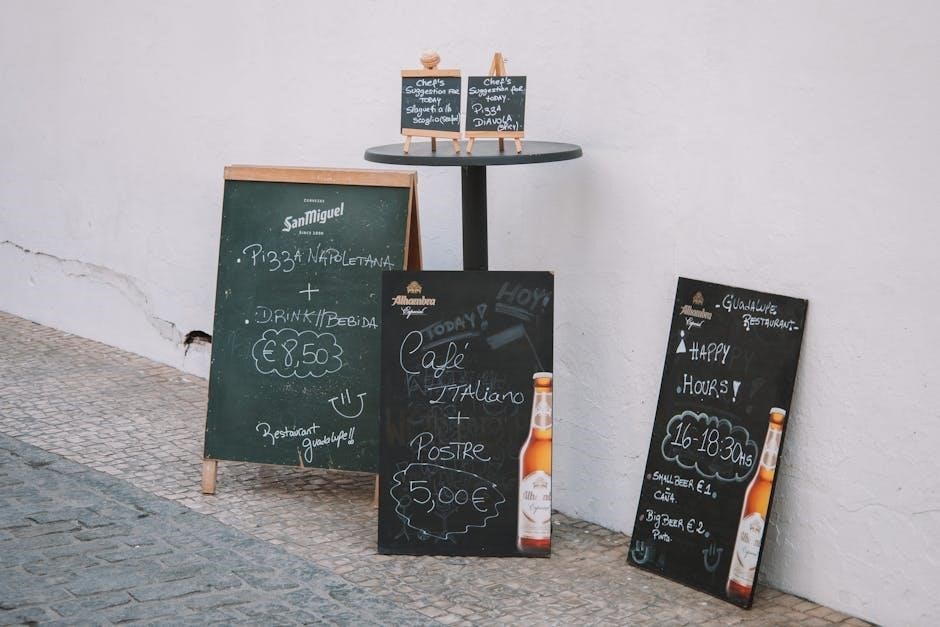 Chef's
Suggestion for
TODAY
scoglio
Chef's
Suggestion for
TODAY.
Pizza
DiAVOLA
(Spicy).
CERVEZAS
San Miguel
SINCE 1890
• Pizza NAPOLETANA
+
• DRINK//BEBIDA
€8,50
Restaurant
Guadalupe!!
Alhambra
Especial
TODAY!
HOY!
Café
ITALiano
+
POSTRE
5,00€
Alhambra
Especial
- GUADALUPE
RESTAURANT -
HAPPY
HOURS!
16-18:30HS
• SMALL BEER €1.
CAÑA.
• BIG BEER €2.
Pinta.